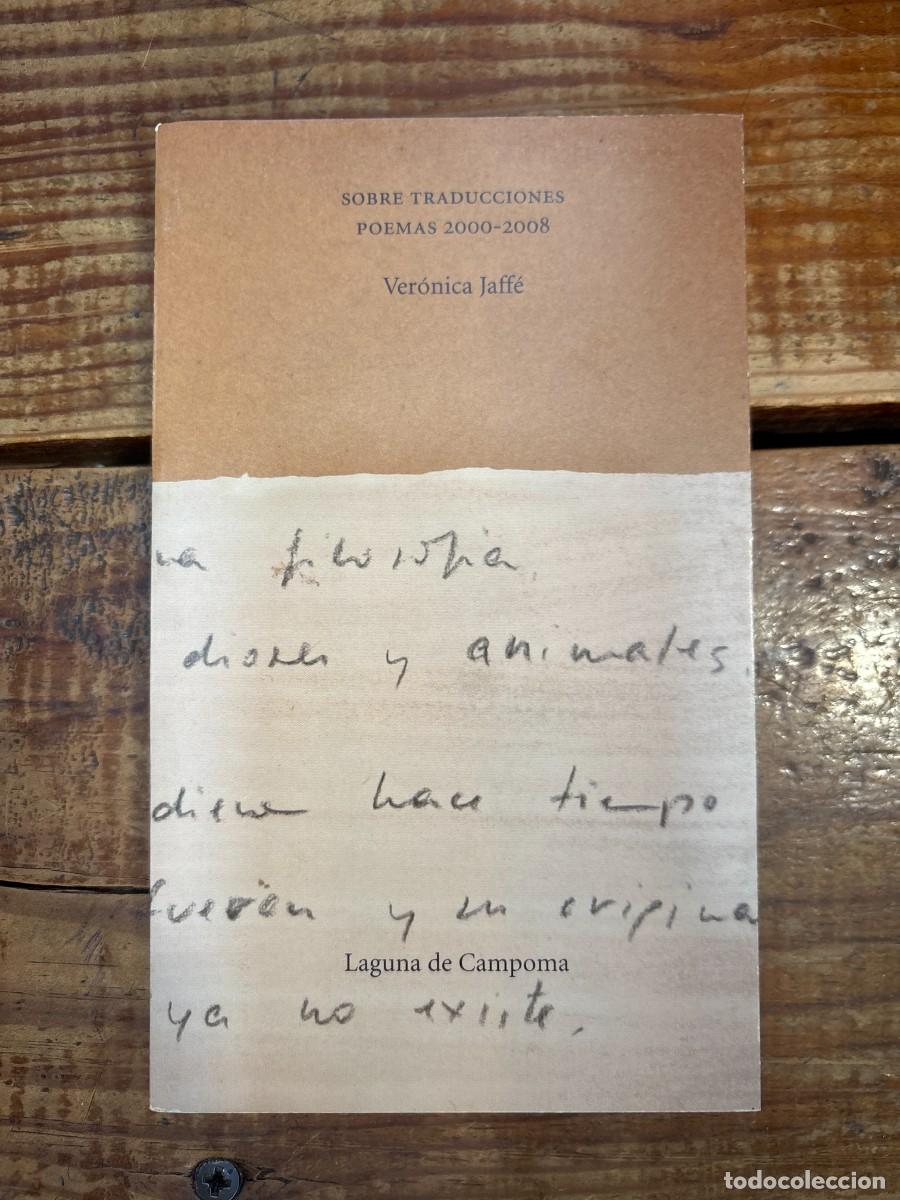 SOBRE TRADUCCIONES
POEMAS 2000-2008
Verónica Jaffé
na filosofia,
dioses y animales,
dieron hace tiempo
fueran y su origina
Laguna de Campoma
ya no existe.
todocoleccion